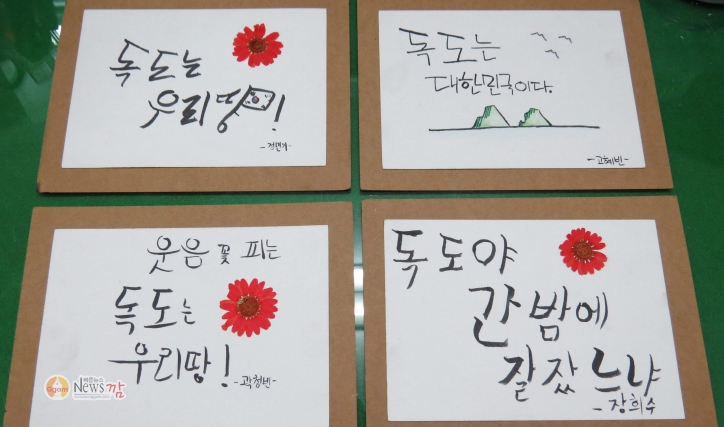 독도는
우리땅!
독도는
대한민국이다.
-고혜빈-
웃음꽃 피는
독도는
우리땅!
-곽청빈-
독도야
간밤에
잘잤느냐
-장희수
Agam
News깜